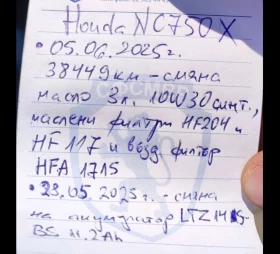 Honda NC750X
• 05.06.2025г.
38449 км - смяна
масло 3л. 10W30 синт.,
маслени филтри HF204 и
HF117 и възд. филтър
HFA 1715
• 23.05.2025г. - смяна
на акумулатор LTZ14S-
BS 11.2Ah